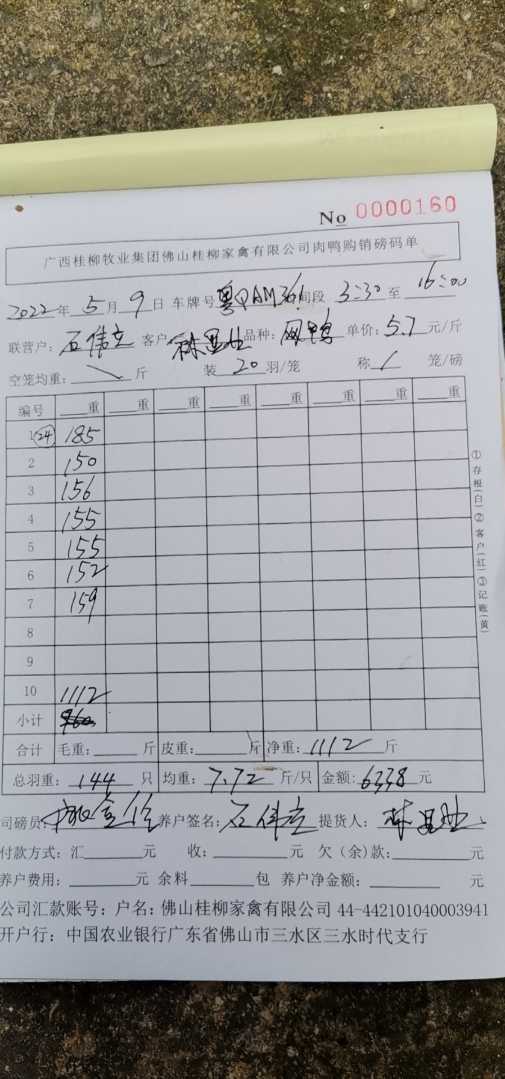 No 0000160
广西桂柳牧业集团佛山桂柳家禽有限公司肉鸭购销磅码单
2022年 5月 9日 车牌号 粤QAM361 间段 3:30 至 16:00
联营户: 石伟立 客户 品种: 单价: 5.7 元/斤
空笼均重: 斤 装 20 羽/笼 称 笼/磅
编号 重 重 重 重 重 重 重 重
1 (24) 185
2 150
3 156
4 155
5 155
6 152
7 159
8
9
10 1112
小计
合计 毛重: 斤 皮重: 斤 净重: 1112 斤
总羽重: 144 只 均重: 7.72 斤/只 金额: 6338 元
司磅员: 养户签名: 石伟立 提货人:
付款方式: 汇 元 收: 元 欠(余)款: 元
养户费用: 元 余料 包 养户净金额: 元
公司汇款账号: 户名: 佛山桂柳家禽有限公司 44-442101040003941
开户行: 中国农业银行广东省佛山市三水区三水时代支行
①存根(白)②客户(红)③记账(黄)